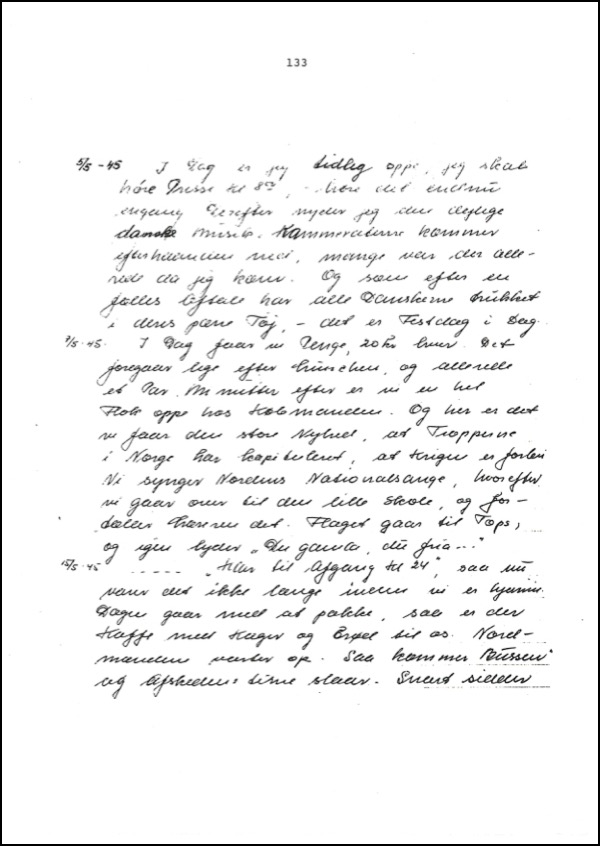 133
5/5 - 45 I Dag er jeg tidlig oppe, jeg skal
høre Presse kl 8, - høre det endnu
engang. Derefter nyder jeg den dejlige
danske Musik. Kammeraterne kommer
efterhaanden ned, mange var der alle-
rede da jeg kom. Og som efter en
fælles Aftale har alle Danskerne trukket
i deres pæne Tøj, - det er Festdag i Dag.
7/5 - 45. I Dag faar vi Penge, 20 Kr hver. Det
foregaar lige efter Lunchen, og allerede
et Par Minutter efter er vi en hel
Flok oppe hos Købmanden. Og her er det
vi faar den store Nyhed, at Tropperne
i Norge har kapituleret, at Krigen er forbi
Vi synger Nordens Nationalsange, hvorefter
vi gaar over til den lille Skole, og for-
tæller det. Flaget gaar til Tops,
og igen lyder „Du gamla, du fria..."
15/5 - 45 ..... „Klar til Afgang kl 24", saa nu
varer det ikke længe inden vi er hjemme.
Dagen gaar med at pakke, saa er der
Kaffe med Kager og til os. Nord-
mændene varter op. Saa kommer Bussen
og Afskedens time slaar. Snart sidder